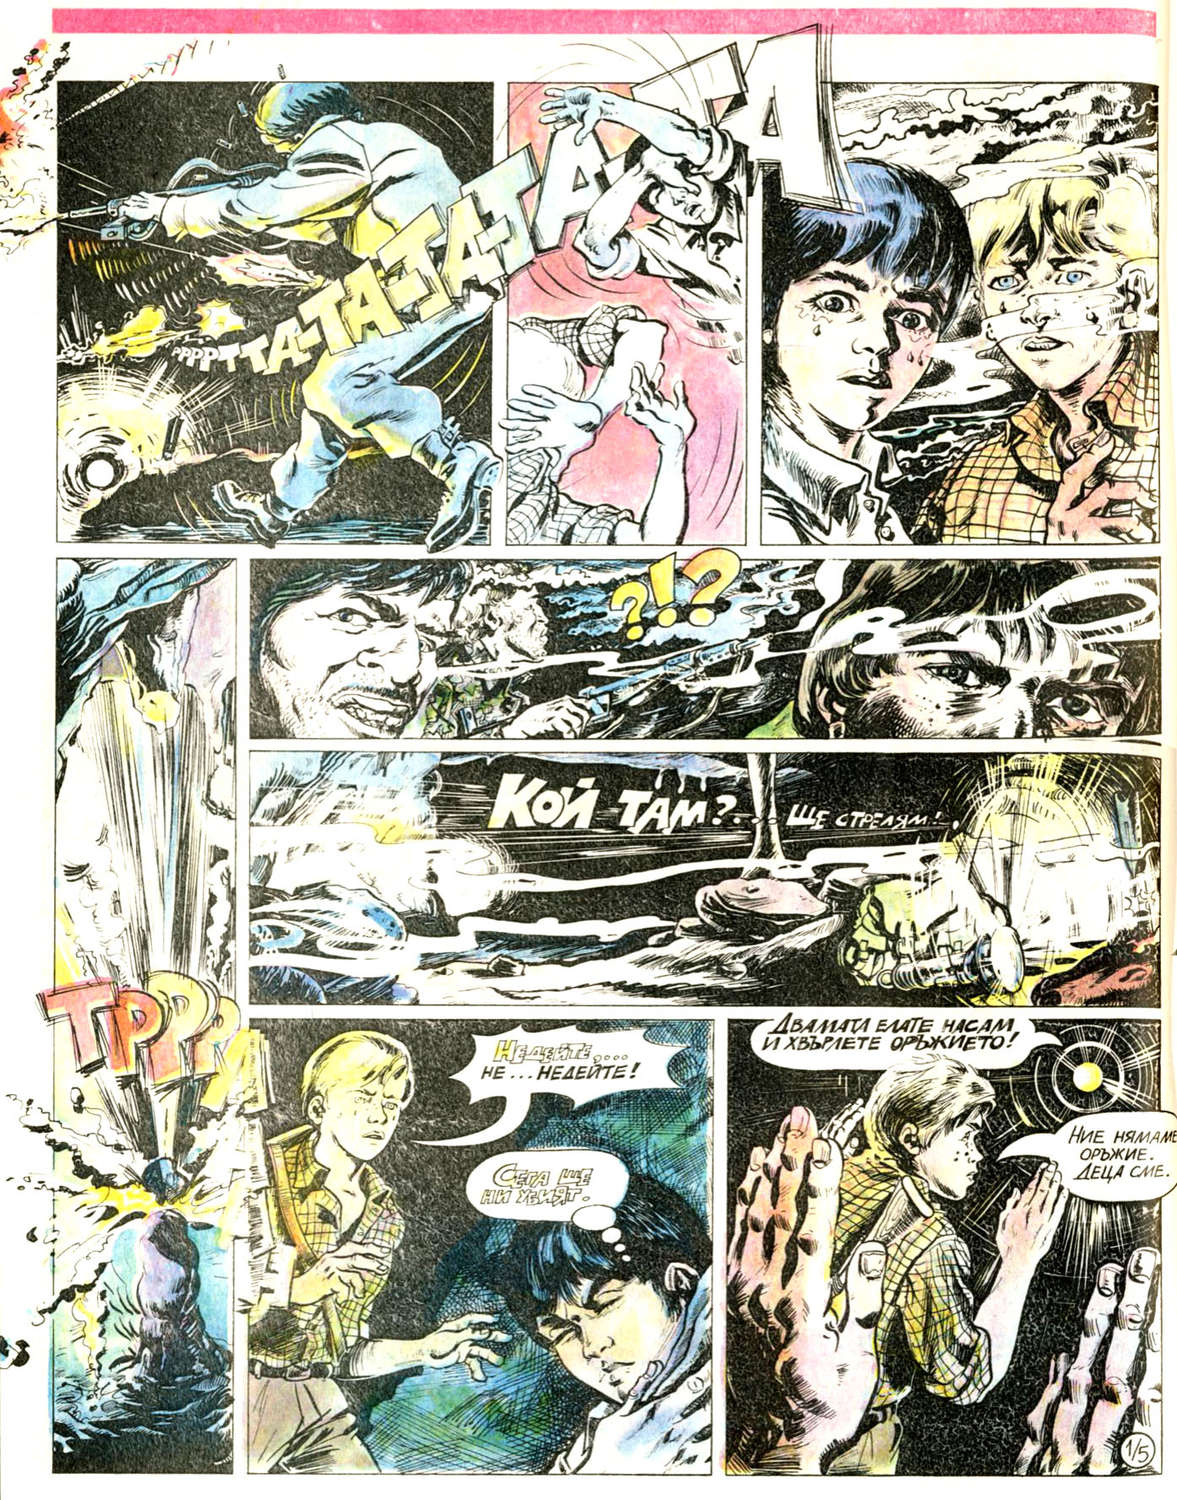 РРРРТТА-ТА-ТА-ТА-ТА-ТА-ТА-ТА
?!?
КОЙ ТАМ?... ЩЕ СТРЕЛЯМ!..
ТРРРР
НЕДЕЙТЕ,....
НЕ...НЕДЕЙТЕ!
СЕГА ЩЕ
НИ УБИЯТ.
ДВАМАТА ЕЛАТЕ НАСАМ
И ХВЪРЛЕТЕ ОРЪЖИЕТО!
НИЕ НЯМАМЕ
ОРЪЖИЕ.
ДЕЦА СМЕ.
1/5